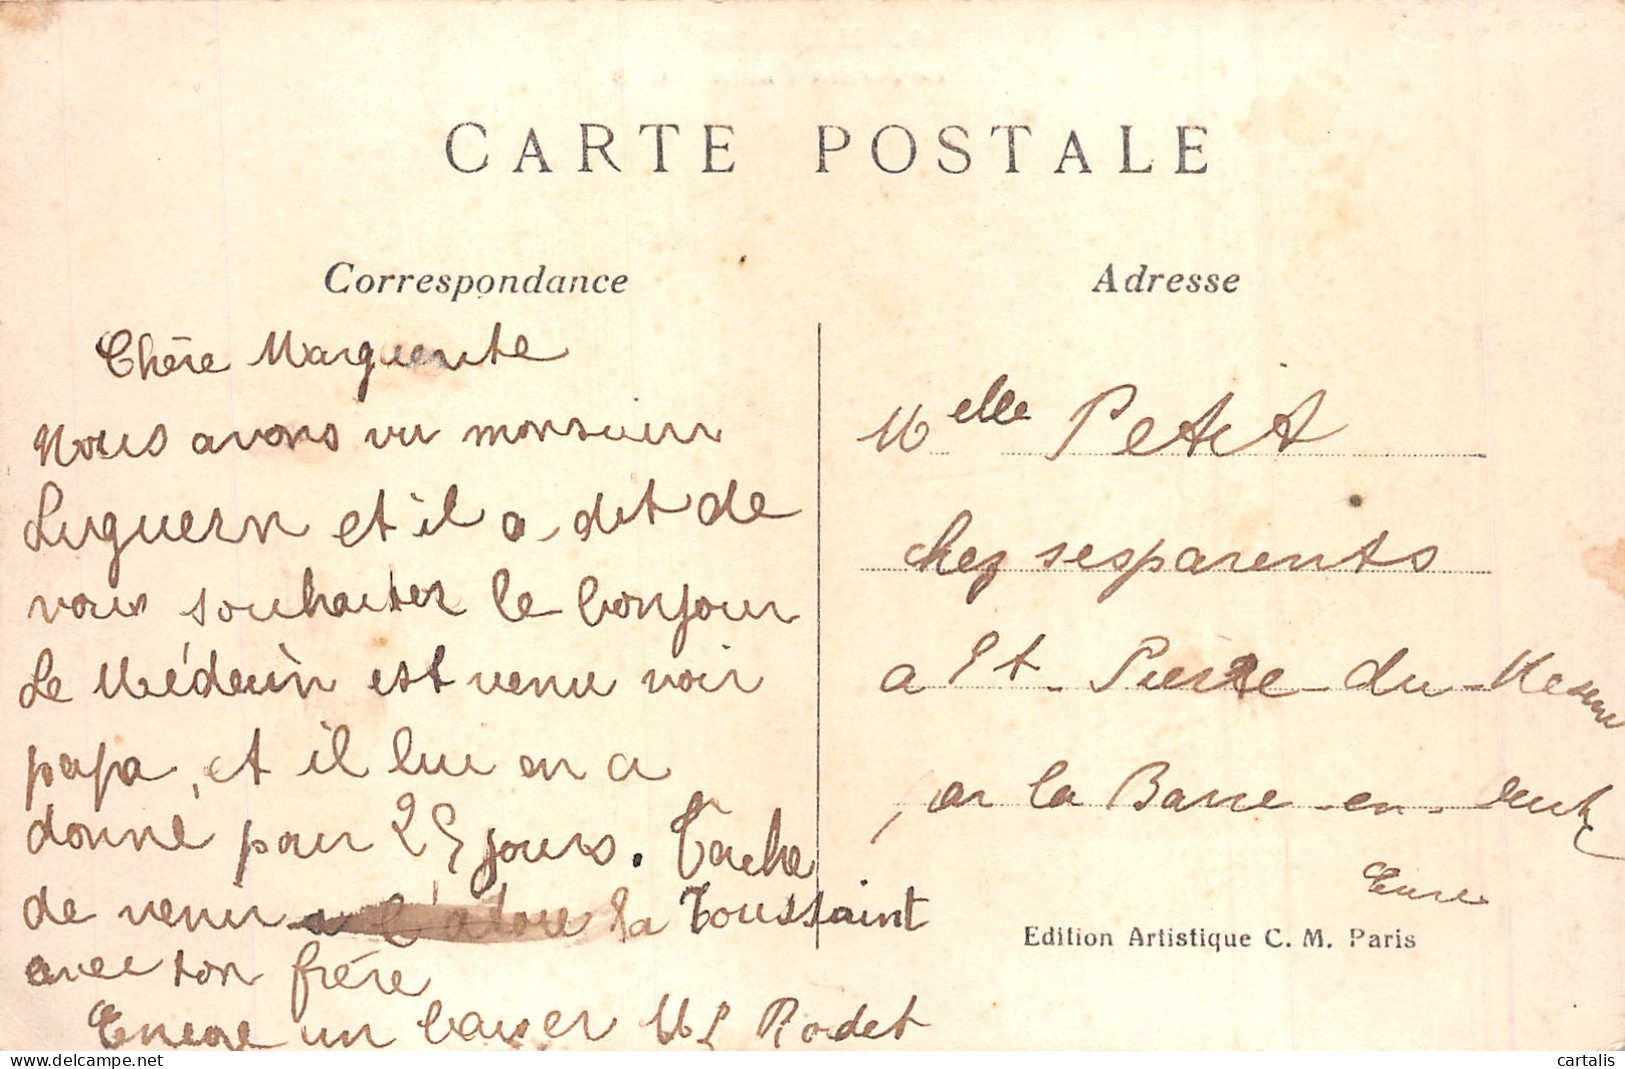 CARTE POSTALE
Correspondance
Chère Marguerite
Nous avons vu monsieur
Luguern et il a dit de
vous souhaiter le bonjour
Le Médecin est venu voir
papa, et il lui en a
donné pour 25 jours. Tache
de venir la Toussaint
avec ton frère
Encore un baiser ML Rodet
Adresse
Melle Petit
chez ses parents
a St. Pierre-du-Mesnil
par la Barre-en-Ouche
Eure
Edition Artistique C. M. Paris
cartalis